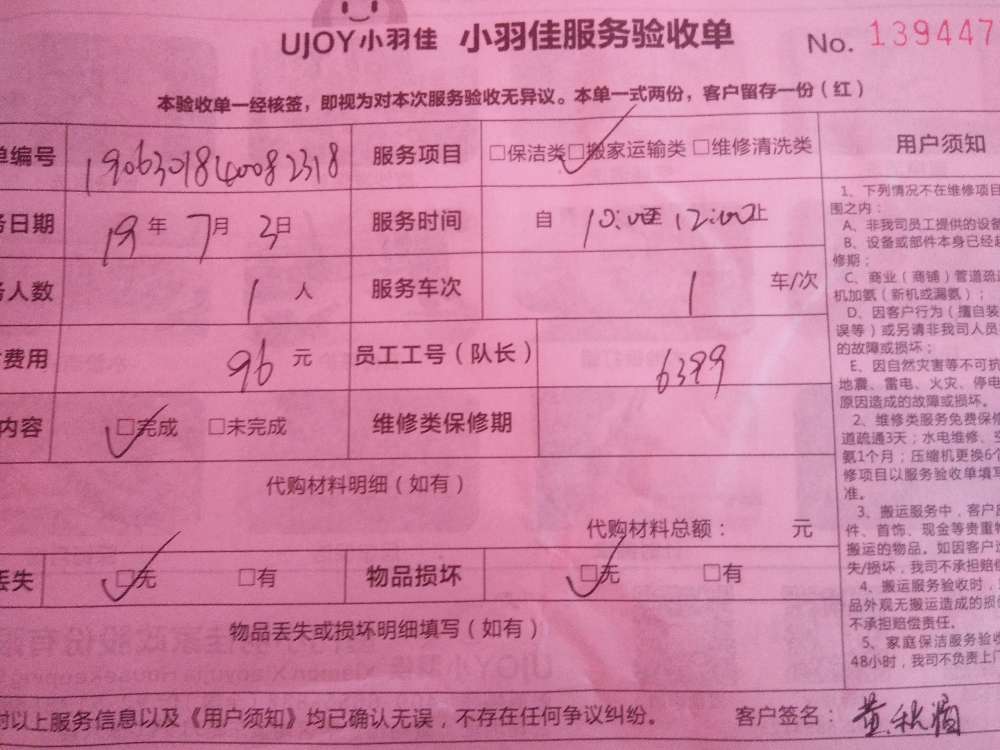 UJOY小羽佳 小羽佳服务验收单 No. 139447
本验收单一经核签，即视为对本次服务验收无异议。本单一式两份，客户留存一份（红）
单编号 1906301840082318 服务项目 □保洁类 □搬家运输类 □维修清洗类
务日期 19年7月3日 服务时间 自 10:00至12:00止
务人数 1人 服务车次 1 车/次
费用 96元 员工工号（队长） 6399
内容 □完成 □未完成 维修类保修期
代购材料明细（如有）
代购材料总额： 元
丢失 □无 □有 物品损坏 □无 □有
物品丢失或损坏明细填写（如有）
对以上服务信息以及《用户须知》均已确认无误，不存在任何争议纠纷。 客户签名：
用户须知
1、下列情况不在维修项目
围之内：
A、非我司员工提供的设备
B、设备或部件本身已经超
修期；
C、商业（商铺）管道疏通
机加氨（新机或漏氨）；
D、因客户行为（擅自装
误等）或另请非我司人员
的故障或损坏；
E、因自然灾害等不可抗
地震、雷电、火灾、停电
原因造成的故障或损坏。
2、维修类服务免费保修
道疏通3天；水电维修、空
氨1个月；压缩机更换6个
修项目以服务验收单填写
准。
3、搬运服务中，客户应
件、首饰、现金等贵重物
搬运的物品。如因客户
失/损坏，我司不承担赔偿
4、搬运服务验收时，
品外观无搬运造成的损
不承担赔偿责任。
5、家庭保洁服务验收
48小时，我司不负责上门